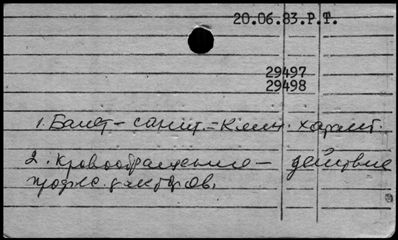 20.06.83.Р.Т.
29497
29498
1. Балет – санит. – клин. характ.
2. Кровообращение – действие
профес. факторов.